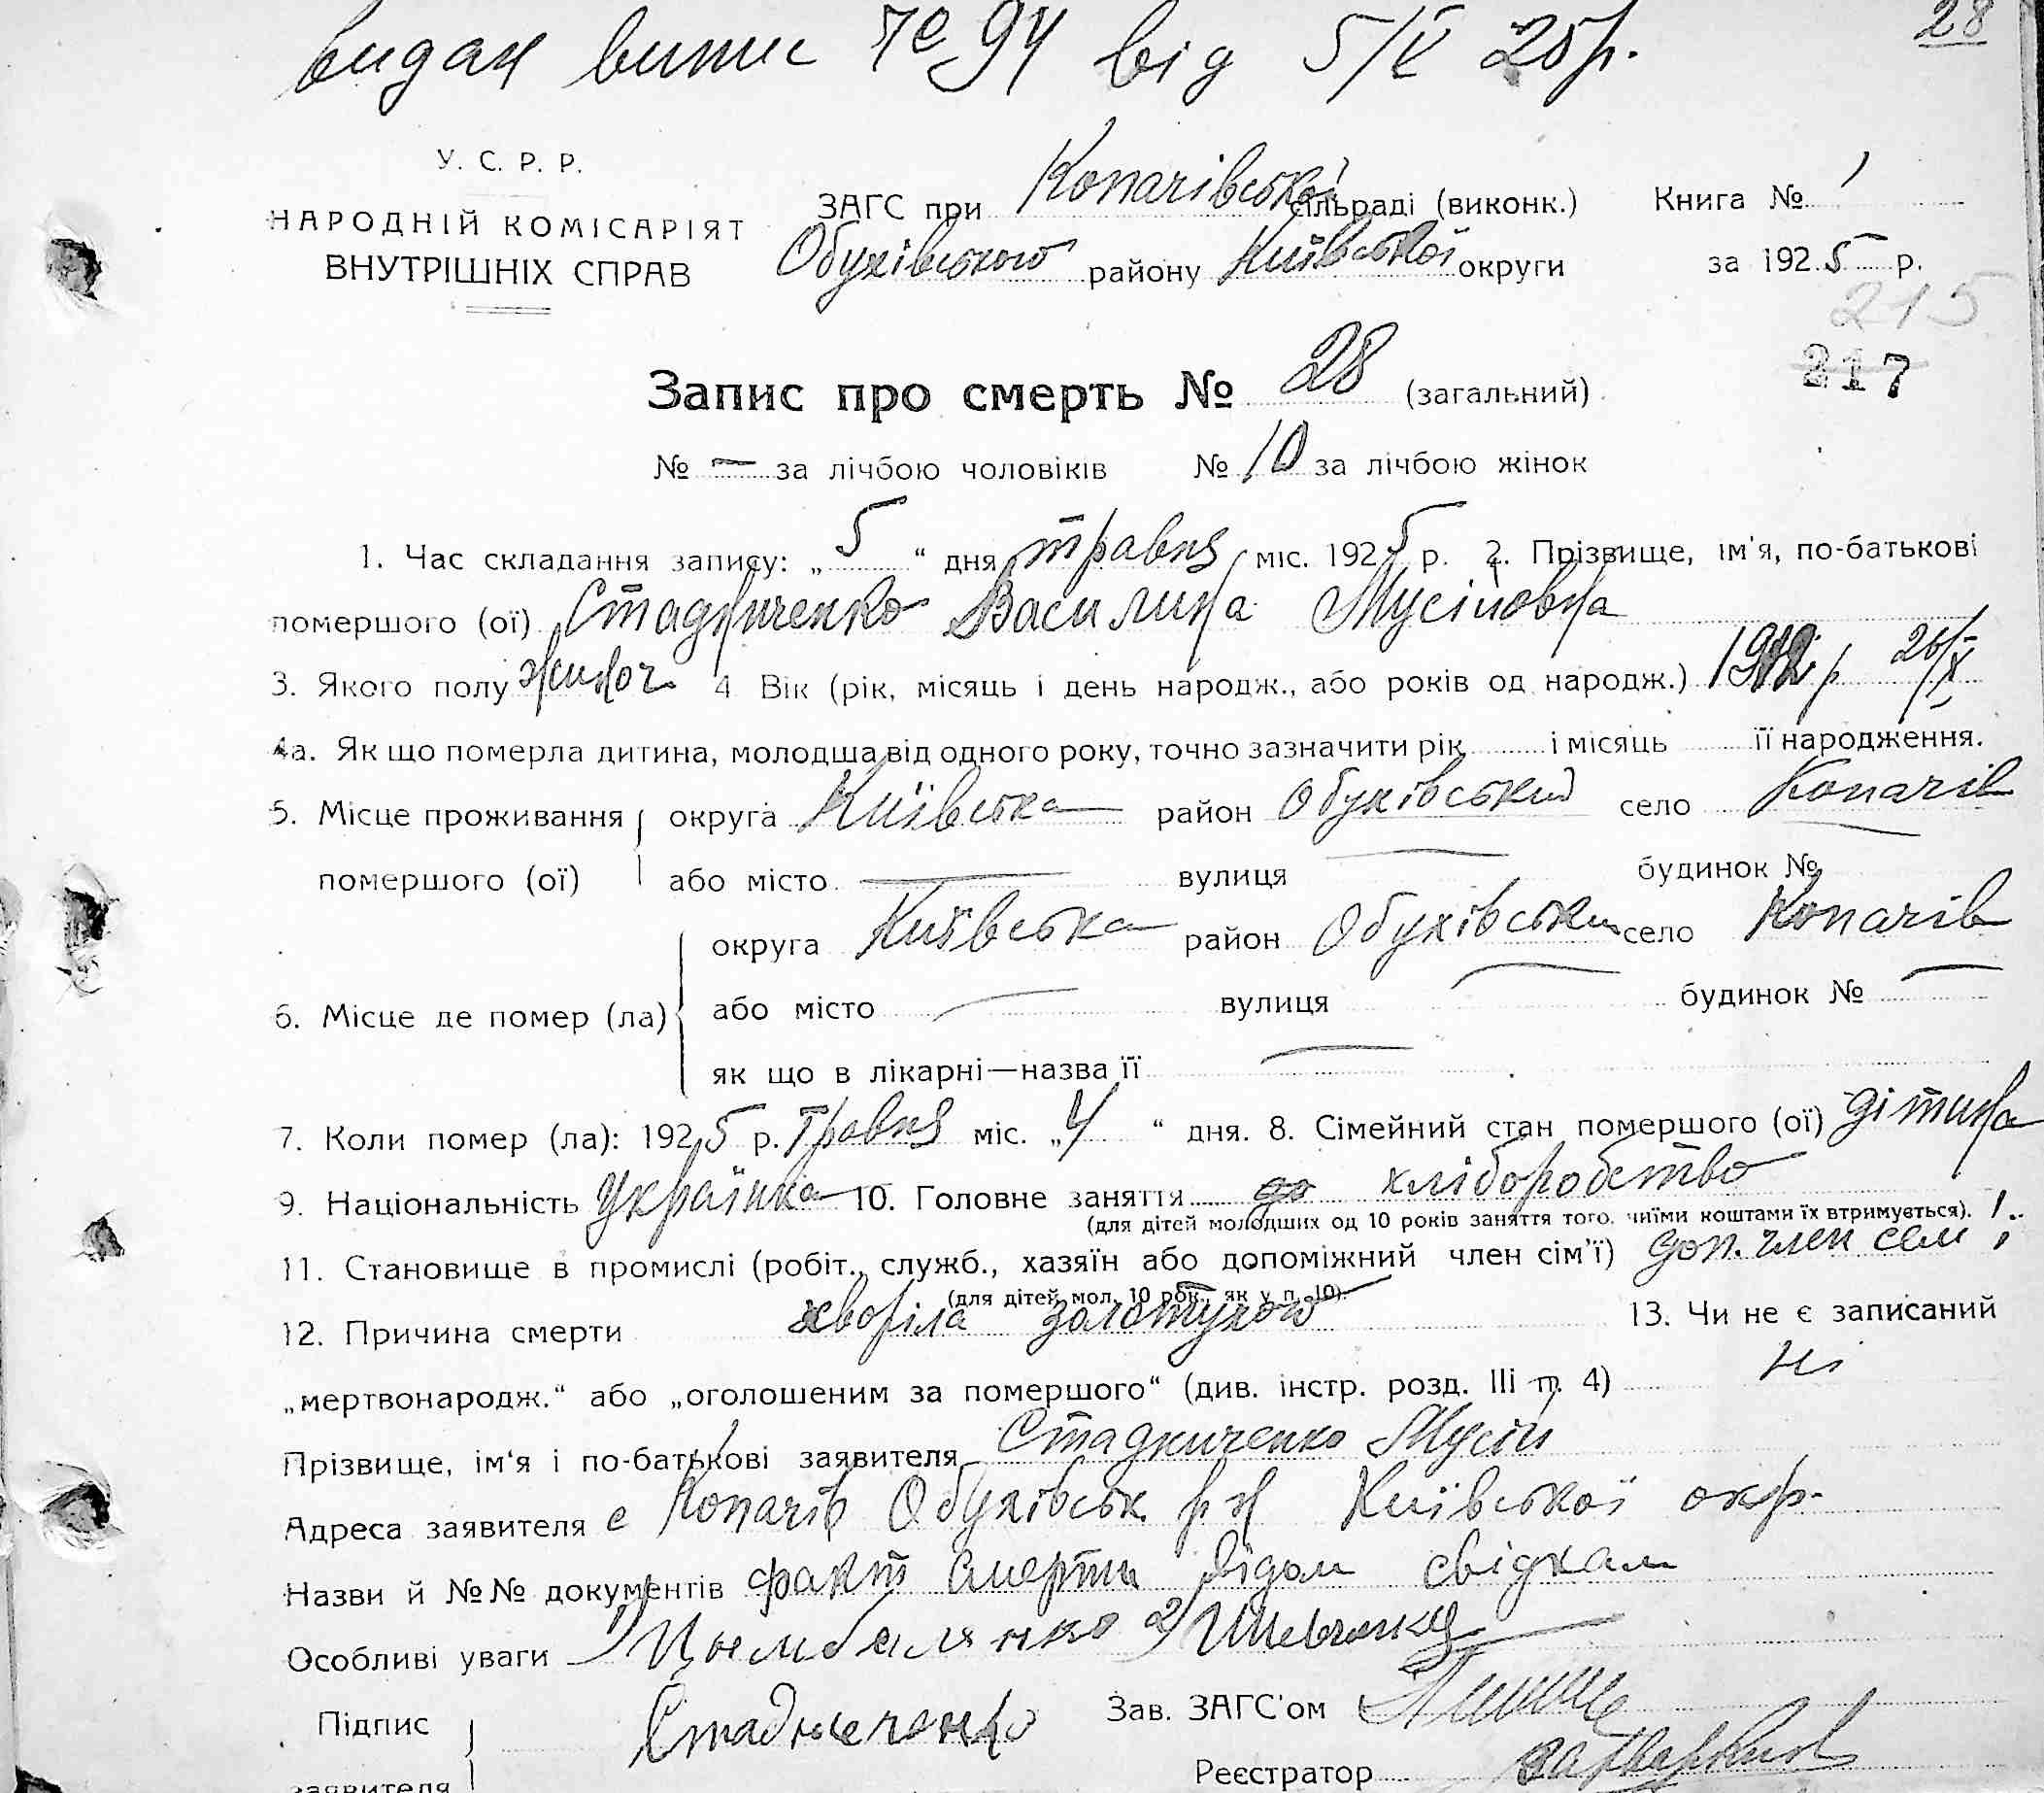 видан випис № 94 від 5/V 25 р.
28
У. С. Р. Р.
НАРОДНІЙ КОМІСАРІЯТ
ВНУТРІШНІХ СПРАВ
ЗАГС при Копачівській сільраді (виконк.) Книга № 1
Обухівського району Київської округи за 1925 р.
215
217
Запис про смерть № 28 (загальний)
№ — за лічбою чоловіків № 10 за лічбою жінок
1. Час складання запису: „5“ дня травня міс. 1925 р. 2. Прізвище, ім'я, по-батькові
помершого (ої) Стадниченко Василина Мусіповна
3. Якого полу жіноч. 4 Вік (рік, місяць і день народж., або років од народж.)
4а. Як що померла дитина, молодша від одного року, точно зазначити рік і місяць її народження.
5. Місце проживання округа Київська район Обухівський село Копачів
помершого (ої) або місто — вулиця — будинок №
округа Київська район Обухівськи село Копачів
6. Місце де помер (ла) або місто — вулиця — будинок № —
як що в лікарні—назва її —
7. Коли помер (ла): 1925 р. травня міс. „4“ дня. 8. Сімейний стан помершого (ої) дітина
9. Національність Українка 10. Головне заняття хліборобство
(для дітей молодших од 10 років заняття того, чиїми коштами їх втримується).
11. Становище в промислі (робіт., служб., хазяїн або допоміжний член сім'ї) доп. член сем'ї
(для дітей мол. 10 рок., як у п. 10).
12. Причина смерти хворіла золотухою 13. Чи не є записаний
„мертвонародж.“ або „оголошеним за помершого“ (див. інстр. розд. III п. 4) ні
Прізвище, ім'я і по-батькові заявителя Стадниченко Мусій
Адреса заявителя с Копачів Обухівськ р н Київської окр.
Назви й №№ документів факт смерти відом свідкам
Особливі уваги 1) Цымбалянко 2) Шевченко
Підпис Стадниченко Зав. ЗАГС'ом
заявителя Реєстратор